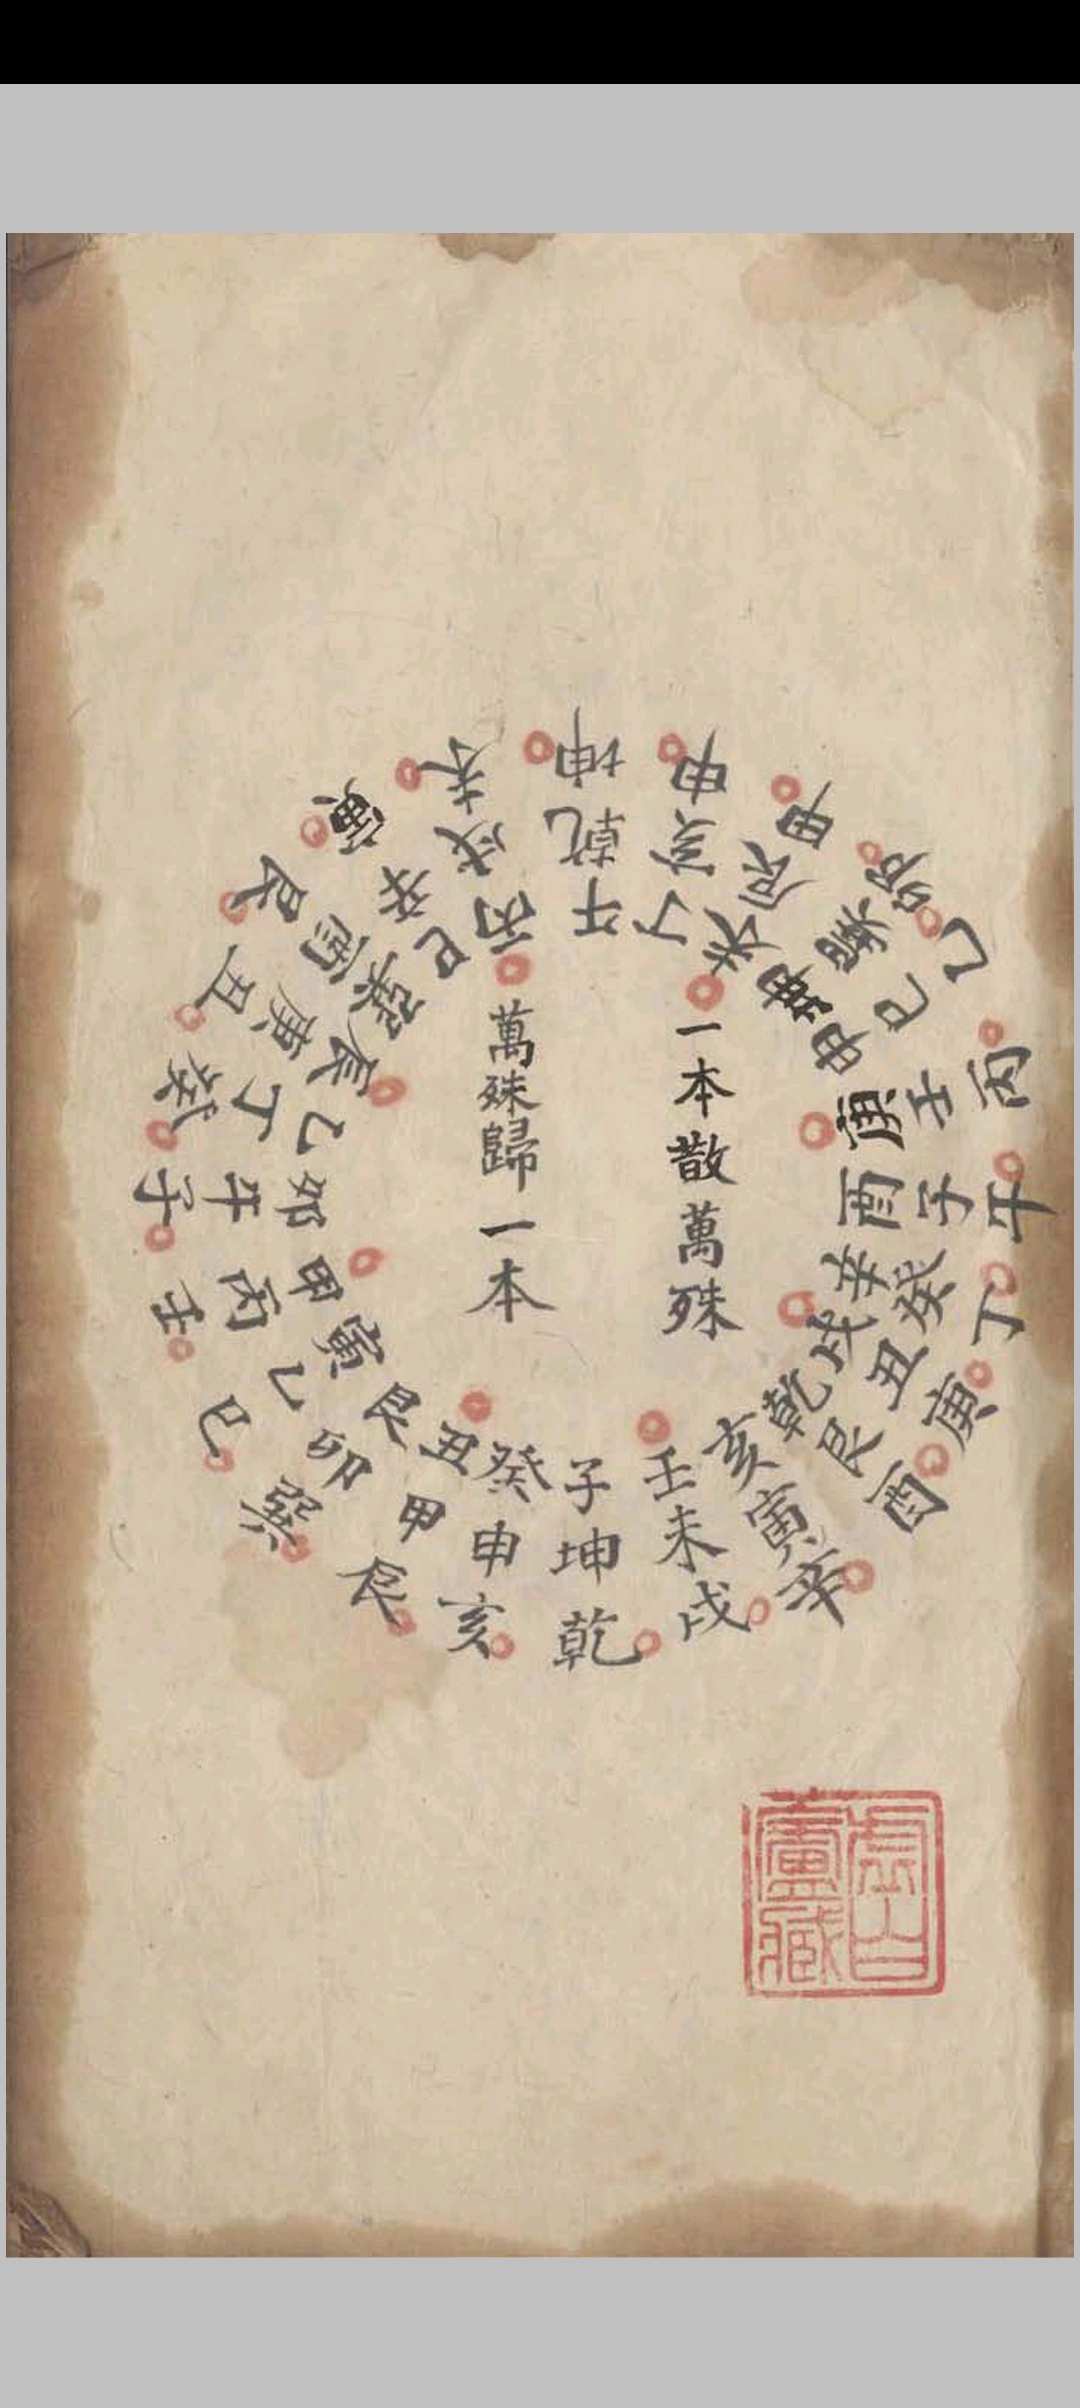 一本散萬殊
萬殊歸一本
午丁未坤申庚酉辛戌乾亥壬子癸丑艮寅甲卯乙辰巽巳丙
乾亥辰巽巳壬子癸丑艮寅未坤申甲卯乙丙午丁庚酉辛戌
坤申甲卯乙丙午丁庚酉辛戌乾亥辰巽巳壬子癸丑艮寅未
虛白
廬藏